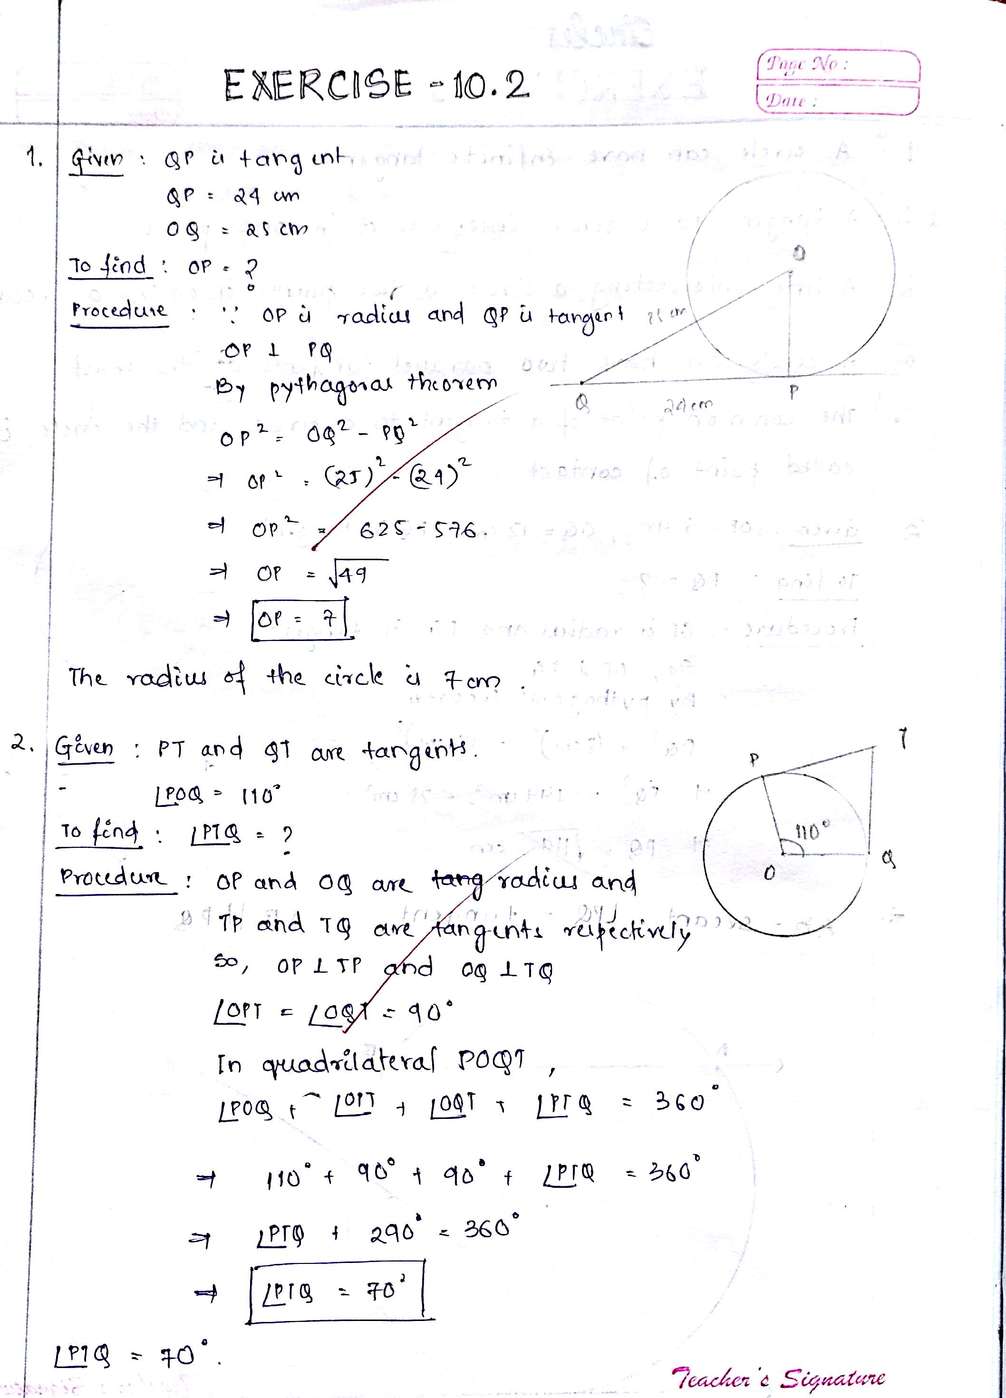 EXERCISE - 10.2
Page No :
Date :
1. Given : QP is tangent
QP = 24 cm
OQ = 25 cm
To find : OP = ?
Procedure : ∵ OP is radius and QP is tangent
OP ⊥ PQ
By pythagoras theorem
OP² = OQ² - PQ²
⇒ OP² = (25)² - (24)²
⇒ OP² = 625 - 576.
⇒ OP = √49
⇒ OP = 7
O
25 cm
Q
24 cm
P
The radius of the circle is 7 cm.
2. Given : PT and QT are tangents.
∠POQ = 110°
To find : ∠PTQ = ?
Procedure : OP and OQ are tang radius and
TP and TQ are tangents respectively
So, OP ⊥ TP and OQ ⊥ TQ
∠OPT = ∠OQT = 90°
In quadrilateral POQT,
∠POQ + ∠OPT + ∠OQT + ∠PTQ = 360°
⇒ 110° + 90° + 90° + ∠PTQ = 360°
⇒ ∠PTQ + 290° = 360°
⇒ ∠PTQ = 70°
T
P
110°
O
Q
∠PTQ = 70°.
Teacher's Signature